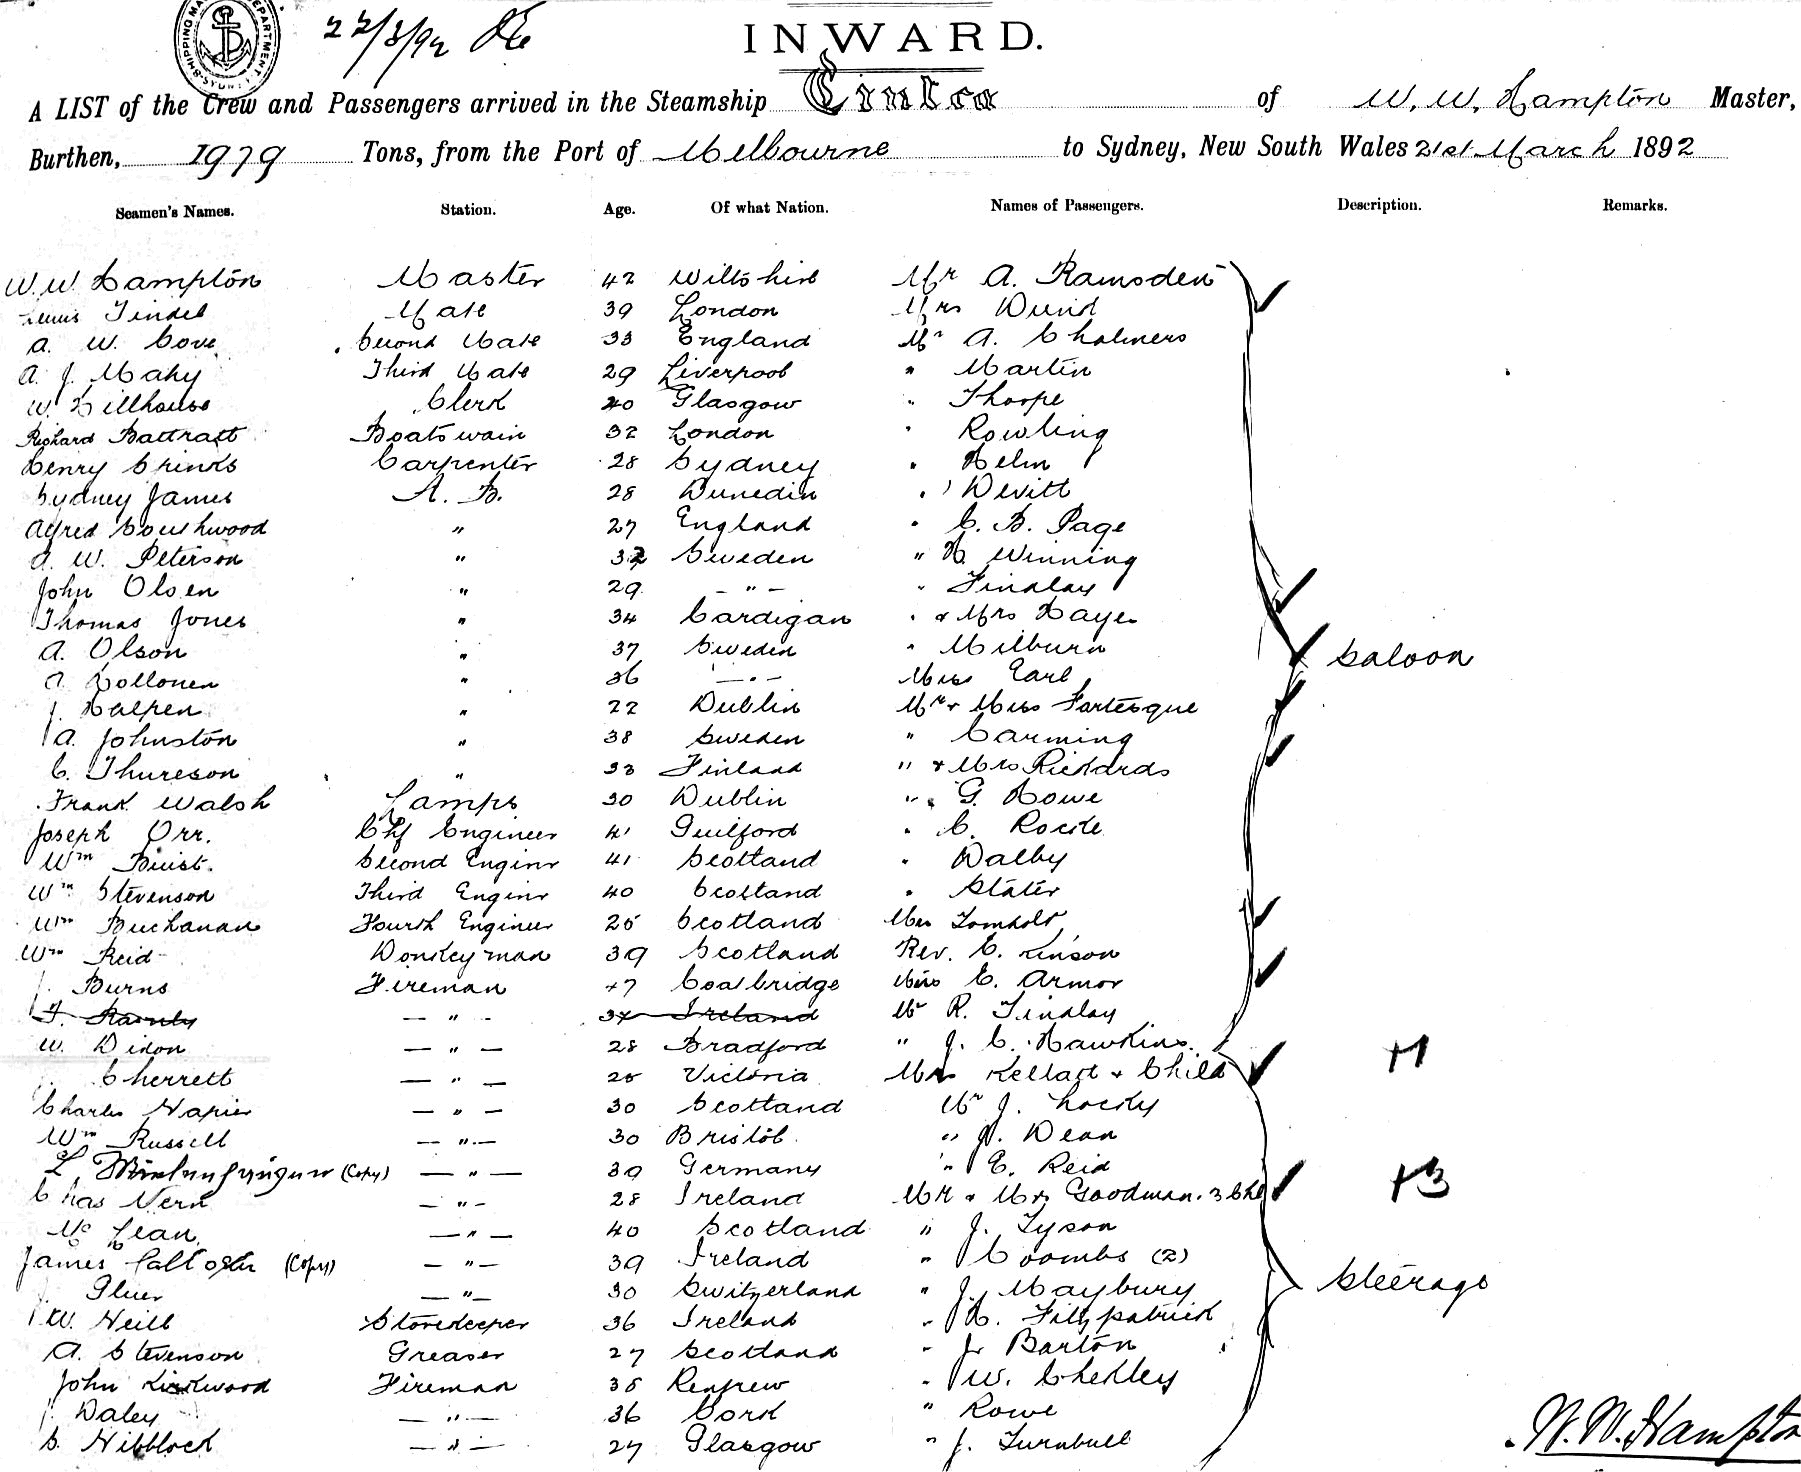 SHIPPING MA DEPARTMENT
22/3/92
INWARD.
A LIST of the Crew and Passengers arrived in the Steamship Cintra of W. W. Hampton Master,
Burthen, 1979 Tons, from the Port of Melbourne to Sydney, New South Wales 21st March 1892
Seamen's Names. Station. Age. Of what Nation. Names of Passengers. Description. Remarks.
W. W. Hampton Master 42 Wiltshire Mr A. Ramsden
Lewis Tindel Mate 39 London Mrs
A. W. Cove Second Mate 33 England Mr A. Chalmers
A. J. Mahy Third Mate 29 Liverpool " Martin
W. Hillhouse Clerk 40 Glasgow " Thorpe
Richard Battratt Boatswain 32 London " Rowling
Henry Chinks Carpenter 28 Sydney " Helm
Sydney James A. B. 28 Dunedin " Devitt
Alfred Southwood " 27 England " C. B. Page
A. W. Peterson " 32 Sweden " H. Winning
John Olsen " 29 - " - " Findlay
Thomas Jones " 34 Cardigan " & Mrs Hayes
A. Olson " 37 Sweden " Milburn
A. " 36 - " - Miss Earl
J. Halpen " 22 Dublin Mr & Miss Fortesque
A. Johnston " 38 Sweden " Carming
C. Thureson " 33 Finland " & Mrs Rickards
Frank Walsh Lamps 30 Dublin " G. Howe
Joseph Orr. Chf Engineer 41 Guilford " C. Rocke
Wm Buist. Second Enginr 41 Scotland " Dalby
Wm Stevenson Third Enginr 40 Scotland " Slater
Wm Buchanan Fourth Engineer 25 Scotland
Wm Reid Donkeyman 39 Scotland Rev. C.
J. Burns Fireman 47 Coatbridge Miss E. Armor
- " - Ireland Mr R. Findlay
W. Dixon - " - 28 Bradford " J. C. Hawkins.
Cherrett - " - 25 Victoria Mrs Kellart & Child
Charles Napier - " - 30 Scotland Mr J.
Wm Russell - " - 30 Bristol. " J. Dean
L. (Copy) - " - 39 Germany " E. Reid
Chas Vern - " - 28 Ireland Mr & Mrs Goodman. 3 Chl
McLean - " - 40 Scotland " J. Tyson
James (Copy) - " - 39 Ireland " Coombs (2)
J. Gluer - " - 30 Switzerland " J. Maybury
W. Neill Storekeeper 36 Ireland " H. Fitzpatrick
A. Stevenson Greaser 27 Scotland " J. Barton
John Kirkwood Fireman 38 Renfrew " W. Chedley
J. Daley - " - 36 Cork " Rowe
S. Nibblock - " - 27 Glasgow " J. Turnbull
Saloon
+1
+3
Steerage
W. W. Hampton